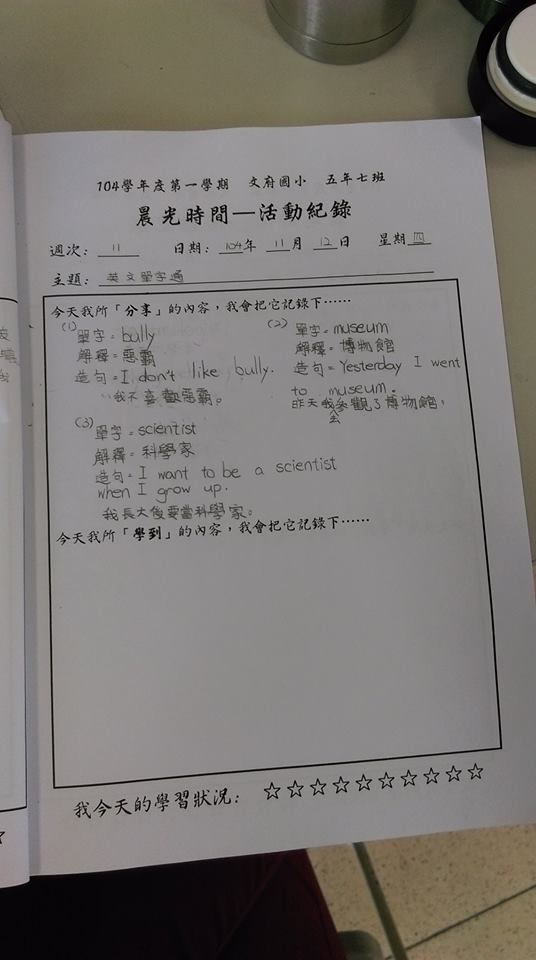 104學年度第一學期 文府國小 五年七班
晨光時間—活動紀錄
週次： 11 日期： 104年 11月 12日 星期四
主題： 英文單字通
今天我所「分享」的內容，我會把它記錄下……
(1) 單字=bully
解釋=惡霸
造句=I don't like bully.
我不喜歡惡霸。
(2) 單字=museum
解釋=博物館
造句=Yesterday I went
to museum.
昨天我去參觀了博物館，
(3) 單字=scientist
解釋=科學家
造句=I want to be a scientist
when I grow up.
我長大後要當科學家。
今天我所「學到」的內容，我會把它記錄下……
我今天的學習狀況： ☆☆☆☆☆☆☆☆☆☆